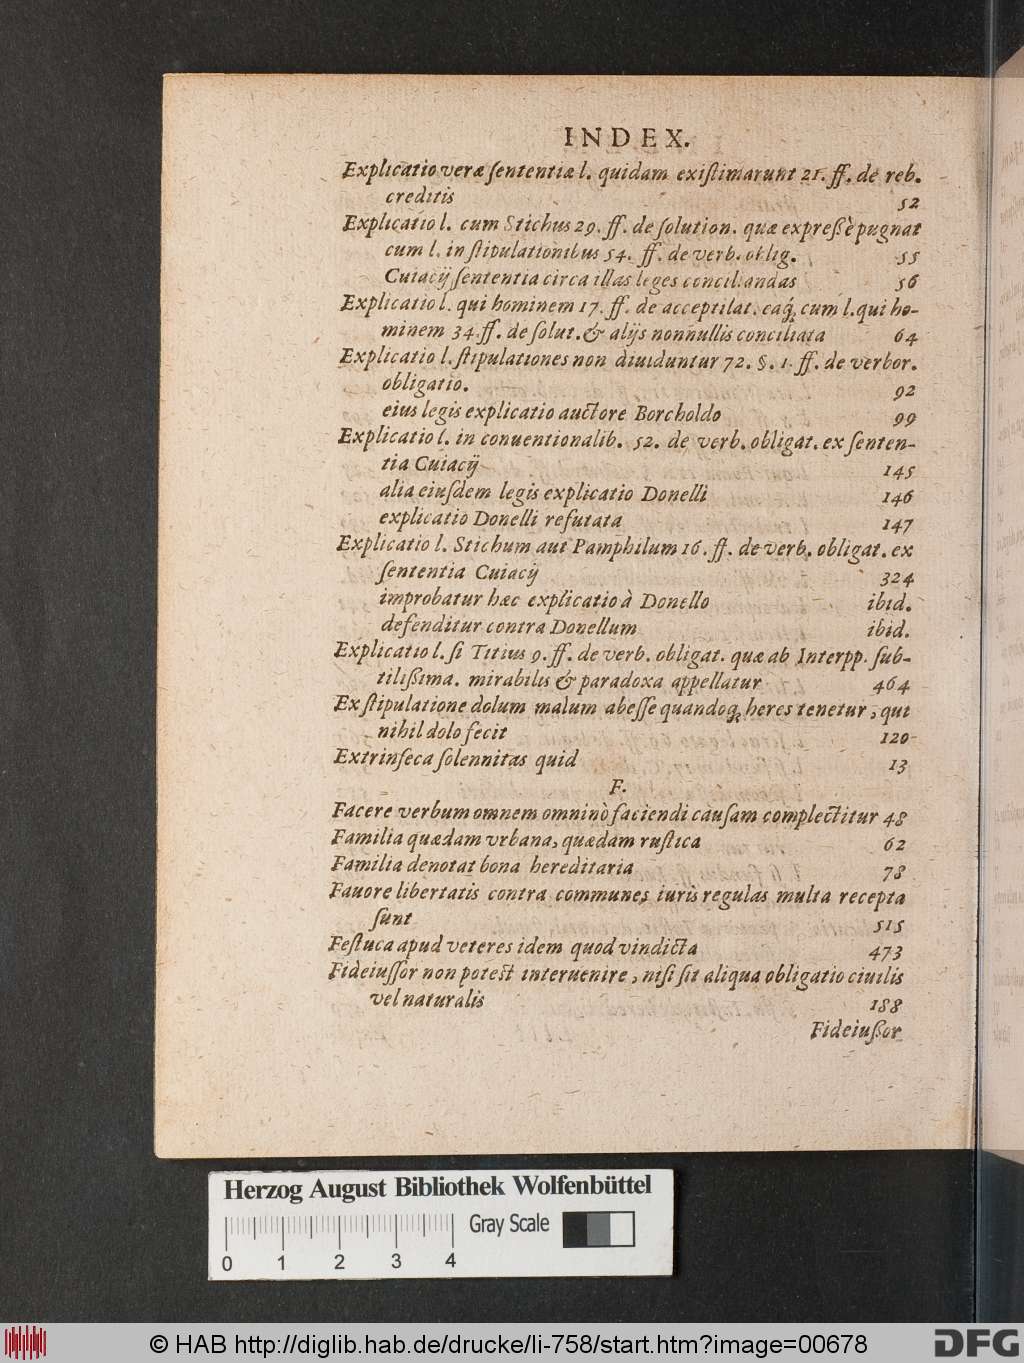 INDEX.
Explicatio veræ ſententiæ l. quidam exiſtimarunt 21. ff. de reb.
creditis 52
Explicatio l. cum Stichus 29. ff. de ſolution. quæ expreßè pugnat
cum l. in ſtipulationibus 54. ff. de verb. oblig. 55
Cuiacij ſententia circa illas leges conciliandas 56
Explicatio l. qui hominem 17. ff. de acceptilat. eaq́; cum l. qui ho-
minem 34. ff. de ſolut. & alijs nonnullis conciliata 64
Explicatio l. ſtipulationes non diuiduntur 72. §. 1. ff. de verbor.
obligatio. 92
eius legis explicatio auctore Borcholdo 99
Explicatio l. in conuentionalib. 52. de verb. obligat. ex ſenten-
tia Cuiacij 145
alia eiuſdem legis explicatio Donelli 146
explicatio Donelli refutata 147
Explicatio l. Stichum aut Pamphilum 16. ff. de verb. obligat. ex
ſententia Cuiacij 324
improbatur hæc explicatio à Donello ibid.
defenditur contra Donellum ibid.
Explicatio l. ſi Titius 9. ff. de verb. obligat. quæ ab Interpp. ſub-
tilißima. mirabilis & paradoxa appellatur 464
Ex ſtipulatione dolum malum abeſſe quandoq; heres tenetur, qui
nihil dolo fecit 120
Extrinſeca ſolennitas quid 13
F.
Facere verbum omnem omninò faciendi cauſam complectitur 48
Familia quædam vrbana, quædam ruſtica 62
Familia denotat bona hereditaria 78
Fauore libertatis contra communes iuris regulas multa recepta
ſunt 515
Feſtuca apud veteres idem quod vindicta 473
Fideiuſſor non potest interuenire, niſi ſit aliqua obligatio ciuilis
vel naturalis 188
Fideiußor
Herzog August Bibliothek Wolfenbüttel
Gray Scale
0 1 2 3 4
© HAB http://diglib.hab.de/drucke/li-758/start.htm?image=00678
DFG